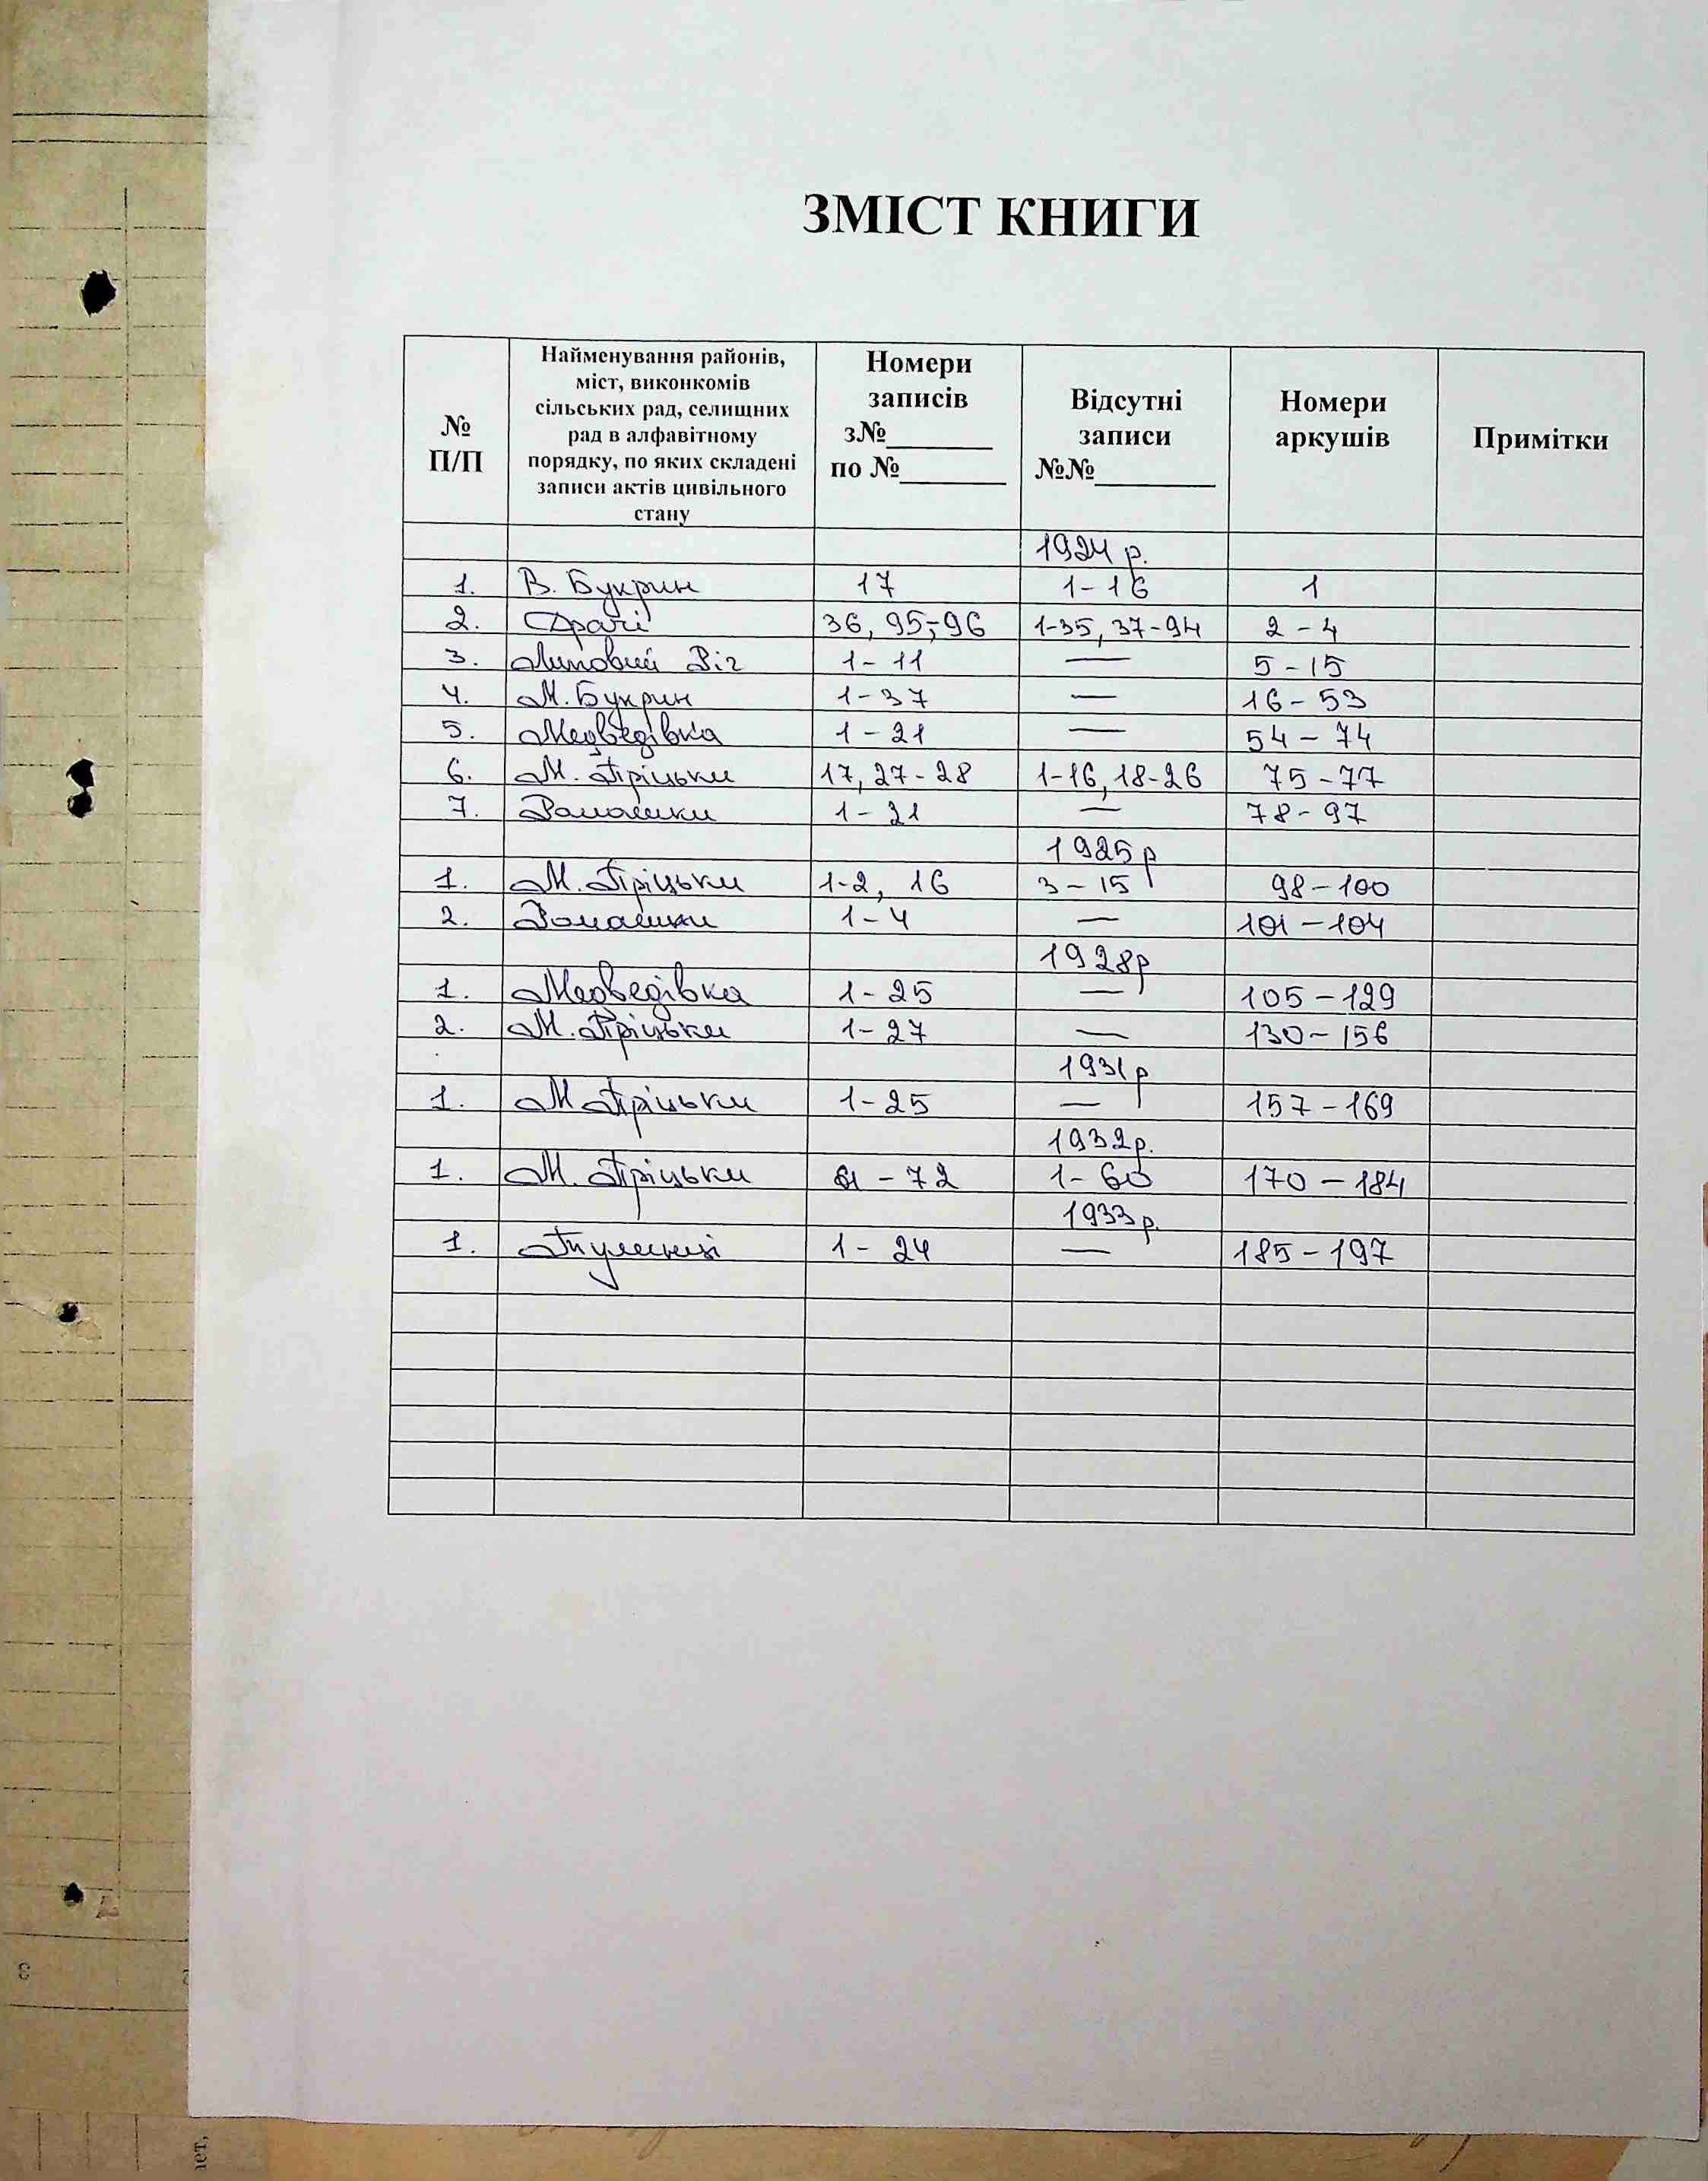 ЗМІСТ КНИГИ
№ П/П
Найменування районів, міст, виконкомів сільських рад, селищних рад в алфавітному порядку, по яких складені записи актів цивільного стану
Номери записів з№________ по №________
Відсутні записи №№_________
Номери аркушів
Примітки
1924 р.
1. В. Букрин 17 1-16 1
2. Драчі 36, 95-96 1-35, 37-94 2-4
3. Липовий Ріг 1-11 — 5-15
4. М. Букрин 1-37 — 16-53
5. Медведівка 1-21 — 54-74
6. М. Пріцьки 17, 27-28 1-16, 18-26 75-77
7. Ромашки 1-21 — 78-97
1925 р
1. М. Пріцьки 1-2, 16 3-15 98-100
2. Ромашки 1-4 — 101-104
1928р
1. Медведівка 1-25 — 105-129
2. М. Пріцьки 1-27 — 130-156
1931р
1. М Пріцьки 1-25 — 157-169
1932р.
1. М. Пріцьки 61-72 1-60 170-184
1933р.
1. 1-24 — 185-197